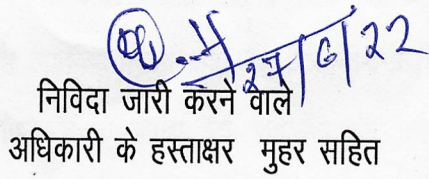 27/6/22
निविदा जारी करने वाले
अधिकारी के हस्ताक्षर मुहर सहित